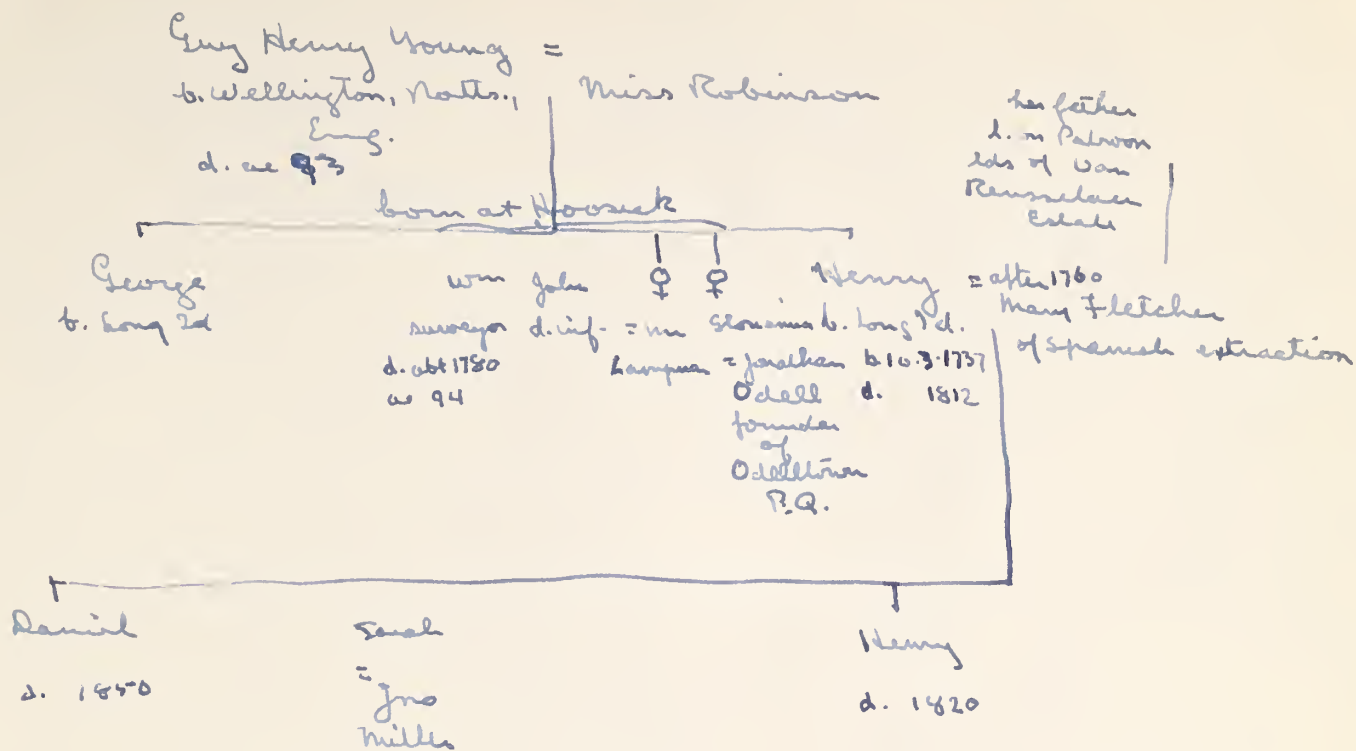 Guy Henry Young =
b. Wellington, Notts.,
Eng.
d. ae 93
Miss Robinson
her father
b. on Patroon
lds of Van
Rensselaer
Estate
born at Hoosick
George
b. Long Id
Wm
surveyor
d. abt 1780
ae 94
John
d. inf.
♀
= Mr
♀
b.
= Jonathan
Odell
founder
of
Odelltown
P.Q.
Henry
Long Id.
b. 10.3.1737
d. 1812
= after 1760
Mary Fletcher
of Spanish extraction
Daniel
d. 1850
Sarah
=
Jno
Miller
Henry
d. 1820